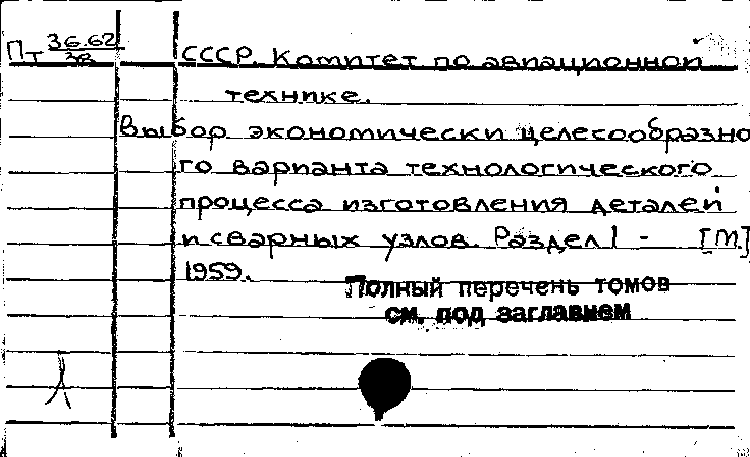 Пт 36.62/3В
СССР. Комитет по авиационной
технике.
Выбор экономически целесообразно
го варианта технологического
процесса изготовления деталей
и сварных узлов. Раздел 1 - [М]
1959.
Полный перечень томов
см. под заглавием